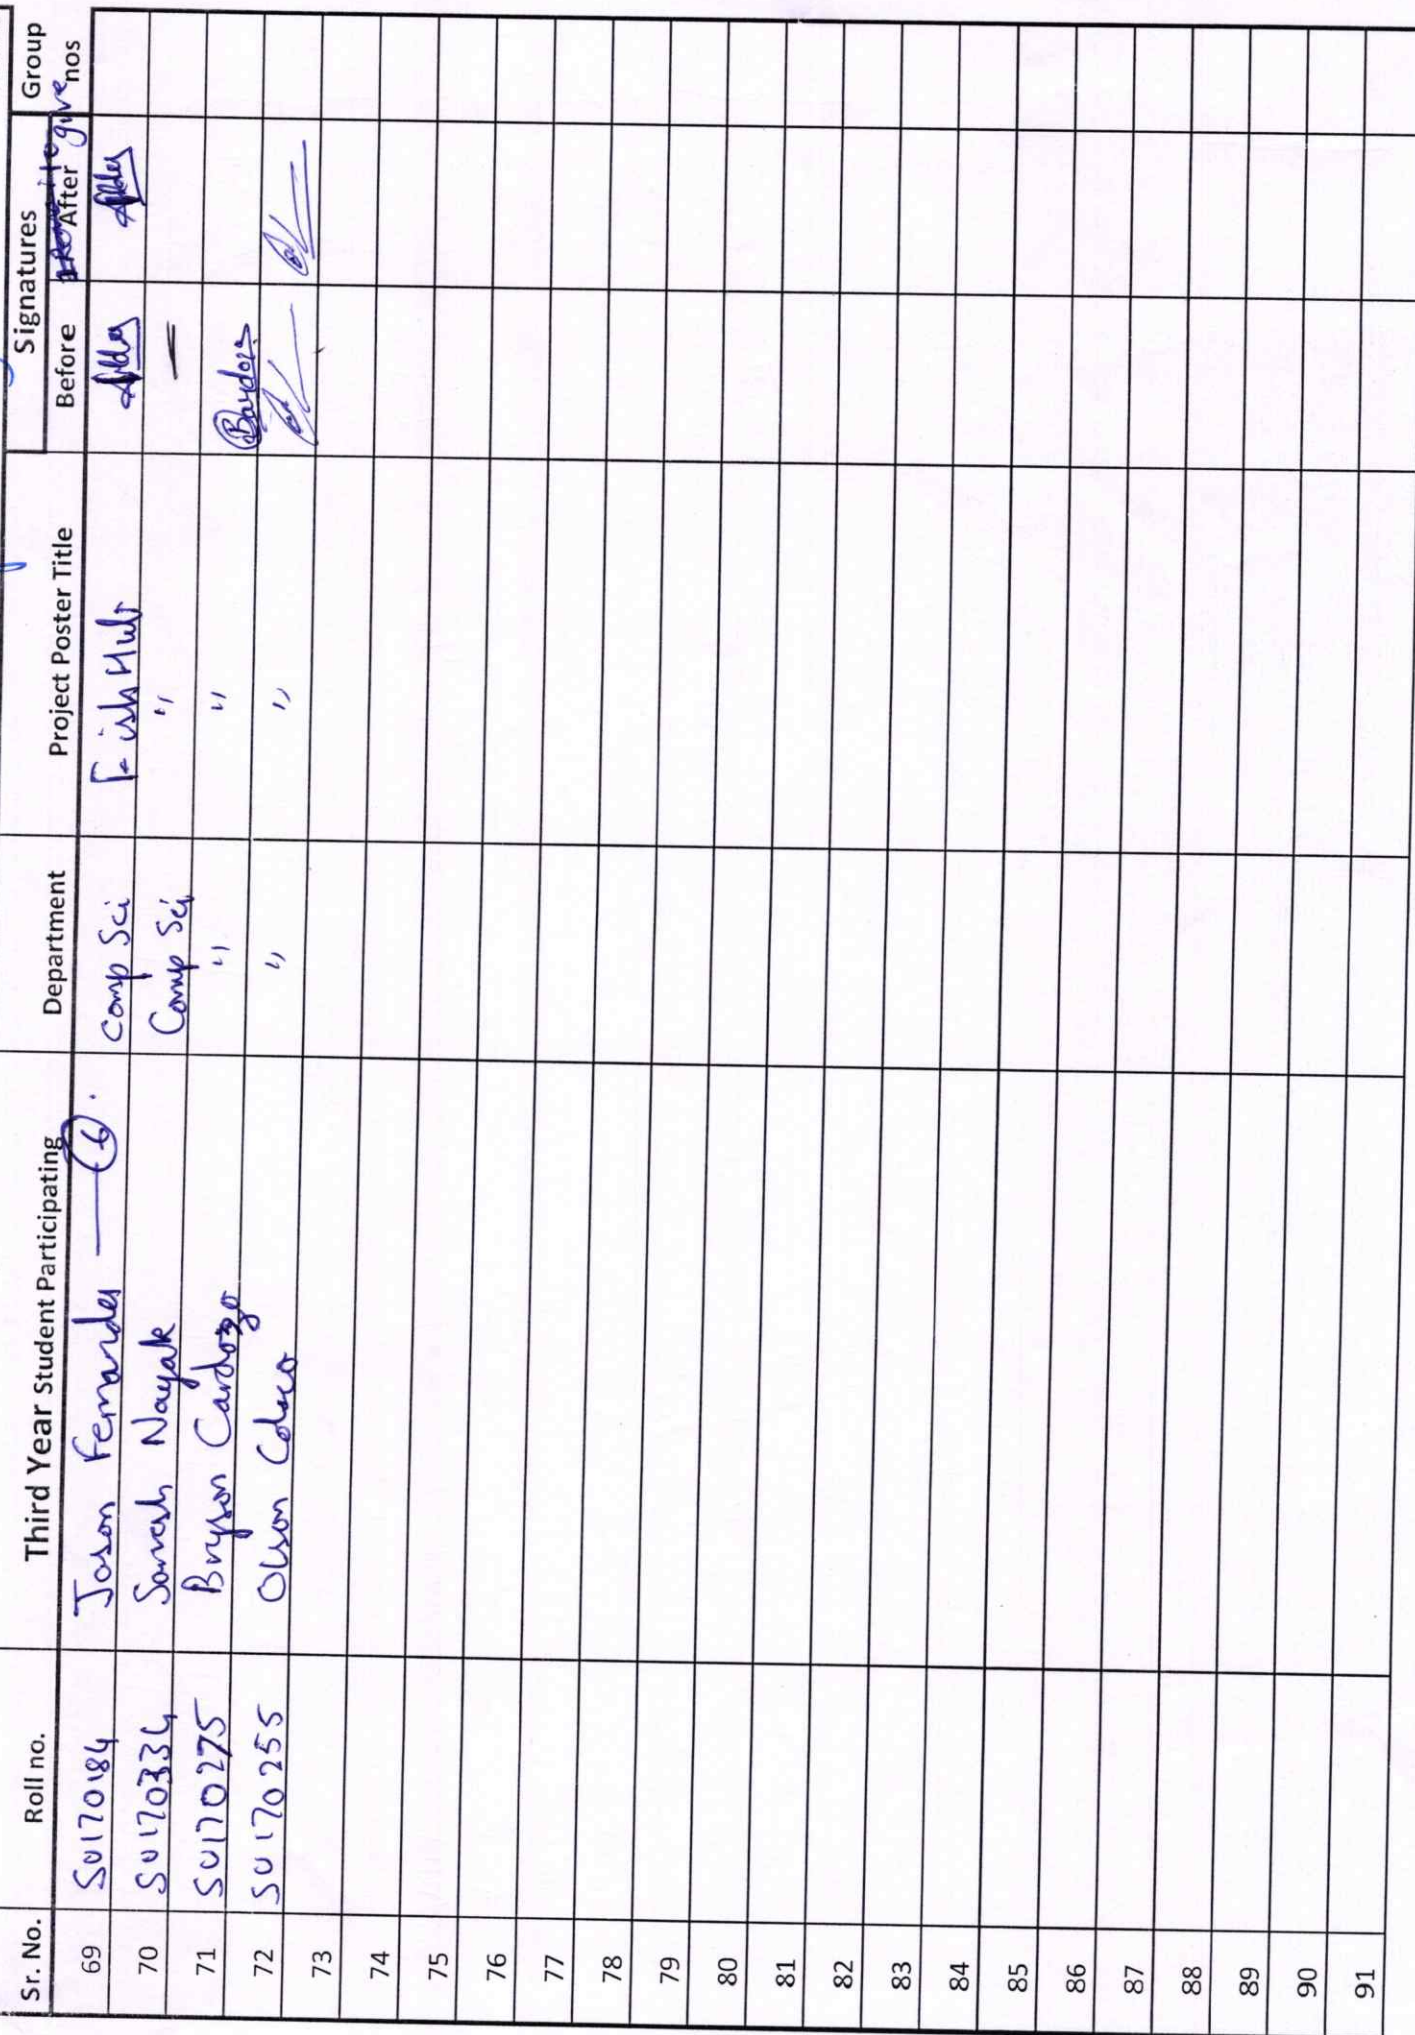 Sr. No. Roll no. Third Year Student Participating Department Project Poster Title Signatures Group nos
Before After give
69 SU170184 Jason Fernandes — 6 . Comp Sci Fish Hub
70 SU170334 Sarvesh Nayak Comp Sci " —
71 SU170275 Bryson Cardozo " "
72 SU170255 Olson Colaco " "
73
74
75
76
77
78
79
80
81
82
83
84
85
86
87
88
89
90
91